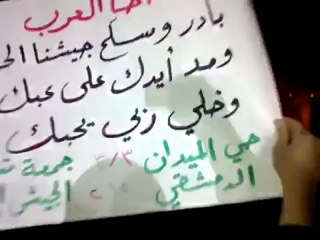 العرب
بادر وسلح جيشنا
ومد أيدك على عبك
وخلي ربي يحبك
حي الميدان ٣/٣ جمعة
الدمشقي الجيش